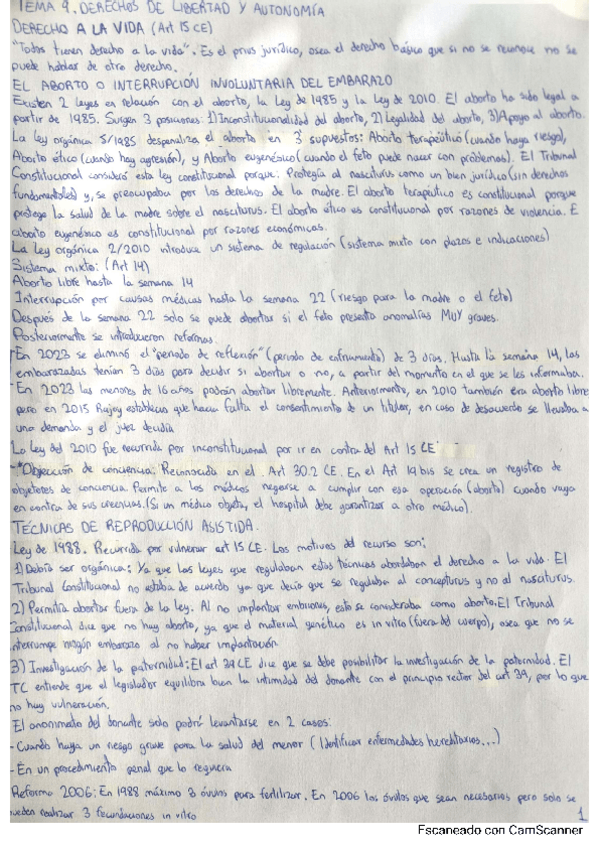 TEMA 9. DERECHOS DE LIBERTAD Y AUTONOMÍA
DERECHO A LA VIDA (Art 15 CE)
"Todos tienen derecho a la vida". Es el prius jurídico, osea el derecho básico que si no se reconoce no se
puede hablar de otro derecho.
EL ABORTO O INTERRUPCIÓN INVOLUNTARIA DEL EMBARAZO
Existen 2 leyes en relación con el aborto, la Ley de 1985 y la Ley de 2010. El aborto ha sido legal a
partir de 1985. Surgen 3 posiciones: 1) Inconstitucionalidad del aborto, 2) Legalidad del aborto, 3) Apoyo al aborto.
La Ley orgánica 5/1985 despenaliza el aborto en 3 supuestos: Aborto terapéutico (cuando haya riesgo),
Aborto ético (cuando hay agresión), y Aborto eugenésico (cuando el feto puede nacer con problemas). El Tribunal
Constitucional consideró esta ley constitucional porque: Protegía al nasciturus como un bien jurídico (sin derechos
fundamentales) y, se preocupaba por los derechos de la madre. El aborto terapéutico es constitucional porque
protege la salud de la madre sobre el nasciturus. El aborto ético es constitucional por razones de violencia. E
aborto eugenésico es constitucional por razones económicas.
La Ley orgánica 2/2010 introduce un sistema de regulación (sistema mixto con plazos e indicaciones)
Sistema mixto: (Art 14)
Aborto libre hasta la semana 14
Interrupción por causas médicas hasta la semana 22 (riesgo para la madre o el feto)
Después de la semana 22 solo se puede abortar si el feto presenta anomalías MUY graves.
Posteriormente se introdujeron reformas.
- En 2023 se eliminó el "periodo de reflexión" (periodo de enfriamiento) de 3 días. Hasta la semana 14, las
embarazadas tenían 3 días para decidir si abortar o no, a partir del momento en el que se les informaba.
- En 2023 las menores de 16 años podrán abortar libremente. Anteriormente, en 2010 también era aborto libre
pero en 2015 Rajoy estableció que hacía falta el consentimiento de un titular, en caso de desacuerdo se llevaba a
una demanda y el juez decidía
La Ley del 2010 fue recurrida por inconstitucional por ir en contra del Art 15 CE
- "Objección de conciencia": Reconocida en el Art 30.2 CE. En el Art 19 bis se crea un registro de
objetores de conciencia. Permite a los médicos negarse a cumplir con esa operación (aborto) cuando vaya
en contra de sus creencias. (Si un médico objeta, el hospital debe garantizar a otro médico).
TÉCNICAS DE REPRODUCCIÓN ASISTIDA.
Ley de 1988. Recurrida por vulnerar art 15 CE. Los motivos del recurso son:
1) Debía ser orgánica: Ya que las leyes que regulaban estas técnicas abordaban el derecho a la vida. El
Tribunal Constitucional no estaba de acuerdo ya que decía que se regulaba al concepturus y no al nasciturus.
2) Permitía abortar fuera de la ley. Al no implantar embriones, esto se consideraba como aborto. El Tribunal
Constitucional dice que no hay aborto, ya que el material genético es in vitro (fuera del cuerpo), osea que no se
interrumpe ningún embarazo al no haber implantación.
3) Investigación de la paternidad: El art 39 CE dice que se debe posibilitar la investigación de la paternidad. El
TC entiende que el legislador equilibra bien la intimidad del donante con el principio rector del art 39, por lo que
no hay vulneración.
El anonimato del donante solo podrá levantarse en 2 casos:
- Cuando haya un riesgo grave para la salud del menor (Identificar enfermedades hereditarias...)
- En un procedimiento penal que lo requiera
Reforma 2006: En 1988 máximo 3 óvulos para fertilizar. En 2006 los óvulos que sean necesarios pero solo se
pueden realizar 3 fecundaciones in vitro
1
Escaneado con CamScanner